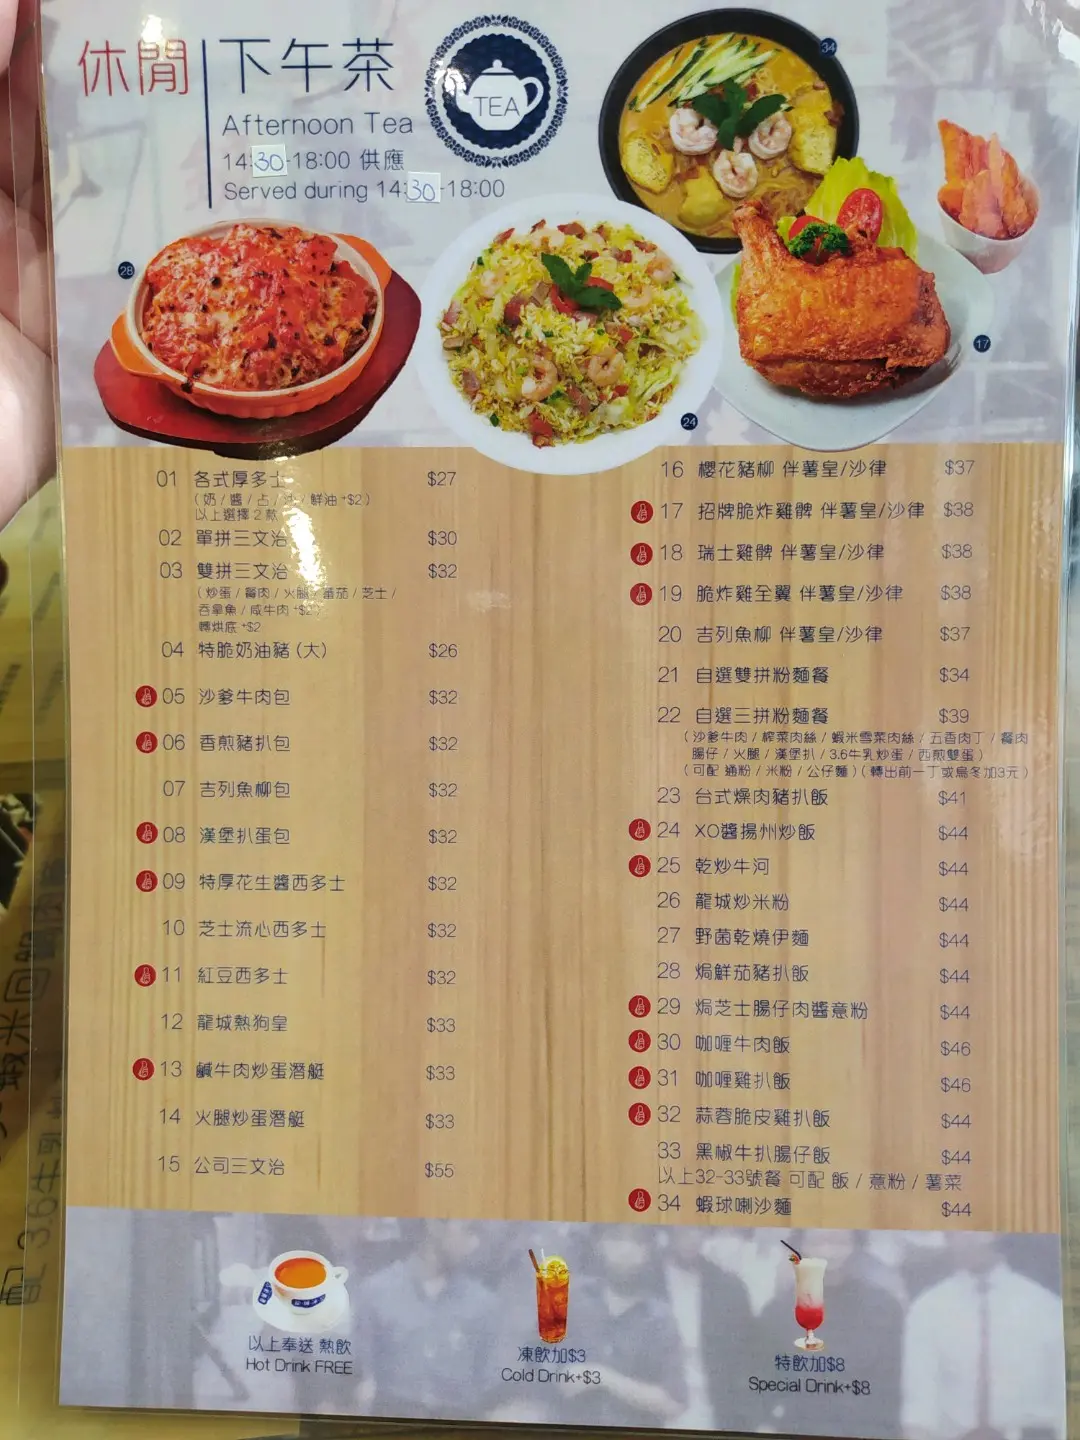 休閒 下午茶
TEA
Afternoon Tea
14:30-18:00 供應
Served during 14:30-18:00
34
28
17
24
01 各式厚多士 $27
(奶/醬/占/ /鮮油+$2)
以上選擇2款
02 單拼三文治 $30
03 雙拼三文治 $32
(炒蛋/餐肉/火腿/蕃茄/芝士/
吞拿魚/咸牛肉+$2)
轉烘底+$2
04 特脆奶油豬(大) $26
05 沙爹牛肉包 $32
06 香煎豬扒包 $32
07 吉列魚柳包 $32
08 漢堡扒蛋包 $32
09 特厚花生醬西多士 $32
10 芝士流心西多士 $32
11 紅豆西多士 $32
12 龍城熱狗皇 $33
13 鹹牛肉炒蛋潛艇 $33
14 火腿炒蛋潛艇 $33
15 公司三文治 $55
16 櫻花豬柳 伴薯皇/沙律 $37
17 招牌脆炸雞髀 伴薯皇/沙律 $38
18 瑞士雞髀 伴薯皇/沙律 $38
19 脆炸雞全翼 伴薯皇/沙律 $38
20 吉列魚柳 伴薯皇/沙律 $37
21 自選雙拼粉麵餐 $34
22 自選三拼粉麵餐 $39
(沙爹牛肉/榨菜肉絲/蝦米雪菜肉絲/五香肉丁/餐肉
腸仔/火腿/漢堡扒/3.6牛乳炒蛋/西煎雙蛋)
(可配 通粉/米粉/公仔麵)(轉出前一丁或烏冬加3元)
23 台式燥肉豬扒飯 $41
24 XO醬揚州炒飯 $44
25 乾炒牛河 $44
26 龍城炒米粉 $44
27 野菌乾燒伊麵 $44
28 焗鮮茄豬扒飯 $44
29 焗芝士腸仔肉醬意粉 $44
30 咖喱牛肉飯 $46
31 咖喱雞扒飯 $46
32 蒜蓉脆皮雞扒飯 $44
33 黑椒牛扒腸仔飯 $44
以上32-33號餐 可配 飯/意粉/薯菜
34 蝦球喇沙麵 $44
以上奉送 熱飲
Hot Drink FREE
凍飲加$3
Cold Drink+$3
特飲加$8
Special Drink+$8